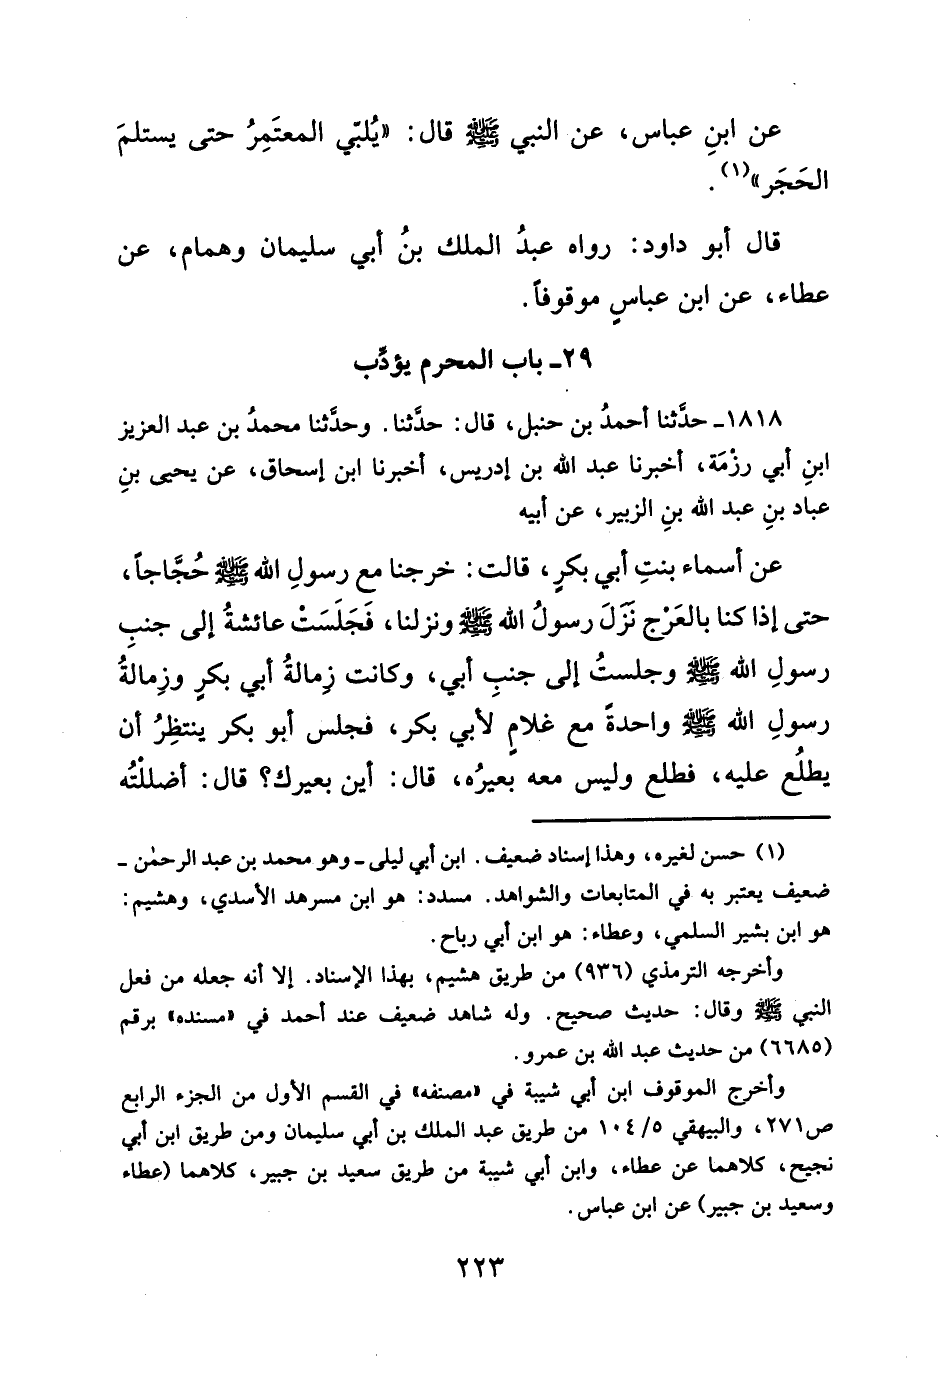 عن ابنِ عباس، عن النبي ﷺ قال: «يُلبّي المعتَمِرُ حتى يستلمَ
الحَجَر»(١).
قال أبو داود: رواه عبدُ الملك بنُ أبي سليمان وهمام، عن
عطاء، عن ابن عباسٍ موقوفاً.
٢٩ـ باب المحرم يؤدِّب
١٨١٨ـ حدَّثنا أحمدُ بن حنبل، قال: حدَّثنا. وحدَّثنا محمدُ بن عبد العزيز
ابنِ أبي رِزْمَة، أخبرنا عبد الله بن إدريس، أخبرنا ابن إسحاق، عن يحيى بنِ
عباد بنِ عبد الله بنِ الزبير، عن أبيه
عن أسماء بنتِ أبي بكرٍ، قالت: خرجنا مع رسولِ الله ﷺ حُجَّاجاً،
حتى إذا كنا بالعَرْجِ نَزَلَ رسولُ الله ﷺ ونزلنا، فَجَلَسَتْ عائشةُ إلى جنبِ
رسولِ الله ﷺ وجلستُ إلى جنبِ أبي، وكانت زِمالةُ أبي بكرٍ وزِمالةُ
رسولِ الله ﷺ واحدةً مع غلامٍ لأبي بكر، فجلس أبو بكر ينتظِرُ أن
يطلُع عليه، فطلع وليس معه بعيرُه، قال: أين بعيرك؟ قال: أضللْتُه
(١) حسن لغيره، وهذا إسناد ضعيف. ابن أبي ليلى ـ وهو محمد بن عبد الرحمٰن ـ
ضعيف يعتبر به في المتابعات والشواهد. مسدد: هو ابن مسرهد الأسدي، وهشيم:
هو ابن بشير السلمي، وعطاء: هو ابن أبي رباح.
وأخرجه الترمذي (٩٣٦) من طريق هشيم، بهذا الإسناد. إلا أنه جعله من فعل
النبي ﷺ وقال: حديث صحيح. وله شاهد ضعيف عند أحمد في «مسنده» برقم
(٦٦٨٥) من حديث عبد الله بن عمرو.
وأخرج الموقوف ابن أبي شيبة في «مصنفه» في القسم الأول من الجزء الرابع
ص٢٧١، والبيهقي ٥/ ١٠٤ من طريق عبد الملك بن أبي سليمان ومن طريق ابن أبي
نجيح، كلاهما عن عطاء، وابن أبي شيبة من طريق سعيد بن جبير، كلاهما (عطاء
وسعيد بن جبير) عن ابن عباس.
٢٢٣